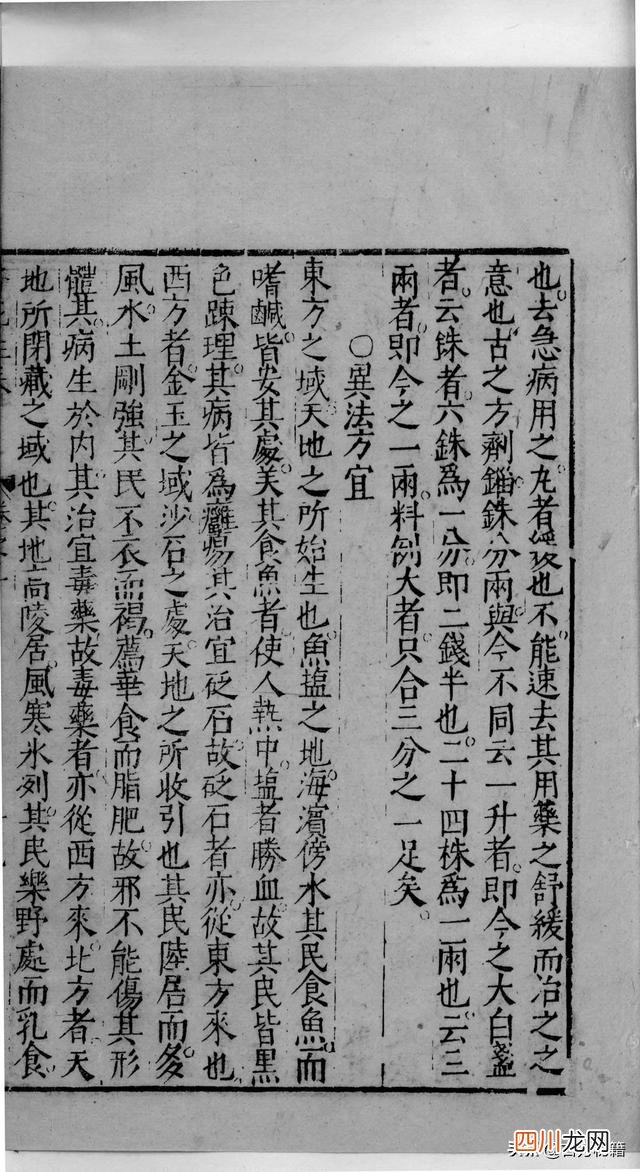 也去急病用之丸者緩也不能速去其用藥之舒緩而治之之
意也古之方劑錙銖分兩與今不同云一升者即今之大白盞
者云銖者六銖爲一分即二錢半也二十四株爲一兩也云三
兩者即今之一兩料劑大者只合三分之一足矣
〇異法方宜
東方之域天地之所始生也魚塩之地海濱傍水其民食魚而
嗜鹹皆安其處美其食魚者使人熱中塩者勝血故其民皆黑
色踈理其病皆爲癰瘍其治宜砭石故砭石者亦從東方來也
西方者金玉之域沙石之處天地之所收引也其民陸居而多
風水土剛強其民不衣而褐薦華食而脂肥故邪不能傷其形
體其病生於内其治宜毒藥故毒藥者亦從西方來北方者天
地所閉藏之域也其地高陵居風寒氷列其民樂野處而乳食
四川龙网